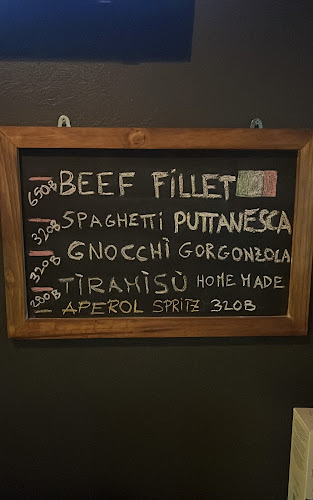 650B BEEF FILLET
320B SPAGHETTI PUTTANESCA
320B GNOCCHÌ GORGONZOLA
200B TÌRAMÌSÙ HOME MADE
APEROL SPRITZ 320B